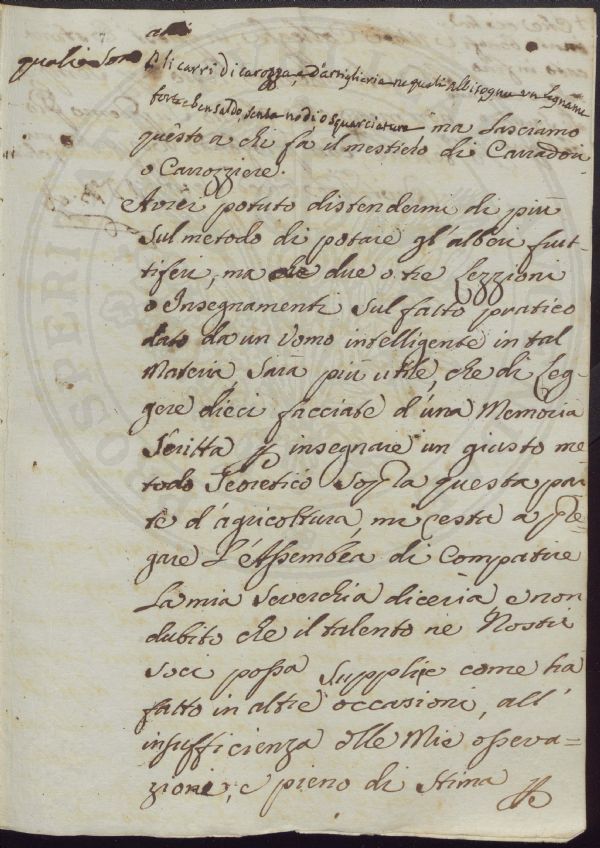 quali sono
li carri di carozza, e d'artiglieria ne quali abbisogna un Legname
forte ben saldo, senza nodi o squarciature ma lasciamo
questo a chi fà il mestiero di Carradori
o Carozziere.
Avrei potuto distendermi di più
sul metodo di potare gl'alberi frut-
tiferi, ma che due o tre Lezzioni
o Insegnamenti sul fatto pratico
dato da un Uomo intelligente in tal
Materia, sarà più utile, che di Leg-
gere dieci facciate d'una Memoria
Scritta p insegnare un giusto me-
todo Teoretico sopra questa par
te d'agricoltura, mi resta a pre-
gare L'Assemblea di Compatire
La mia soverchia diceria, e non
dubito che il talento ne Nostri
soci possa supplire come ha
fatto in altre occasioni, all'
insufficienza delle Mie osserva=
zioni, e pieno di stima